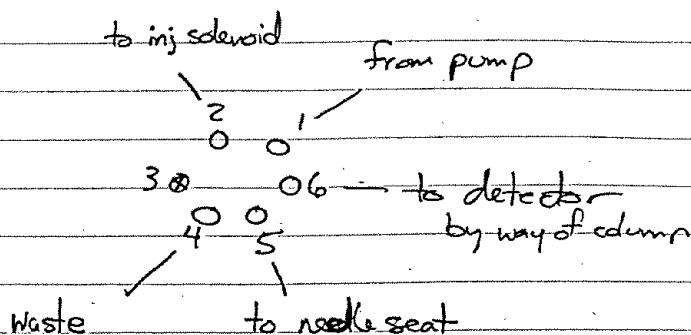 to inj solenoid
from pump
2
1
3
6
to detector
by way of column
4
5
waste
to needle seat